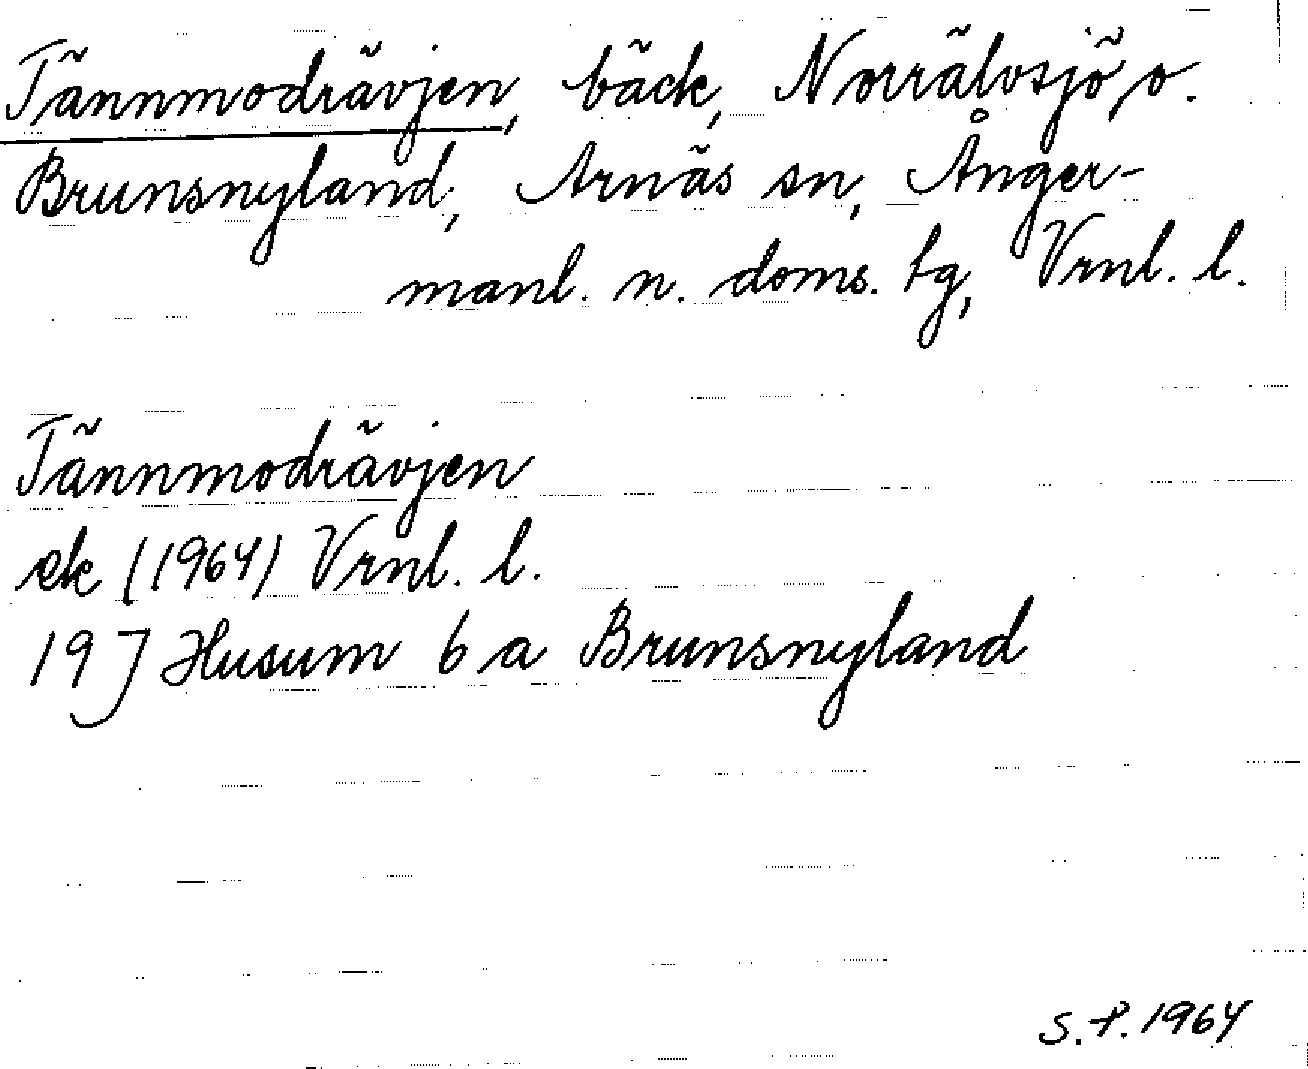 Tännmodrävjen, bäck, Norrälvsjö, o.
Brunsnyland, Arnäs sn, Ånger-
manl. n. doms. tg, Vrnl. l.
Tännmodrävjen
ek (1964) Vrnl. l.
19 J Husum 6 a Brunsnyland
S.P. 1964